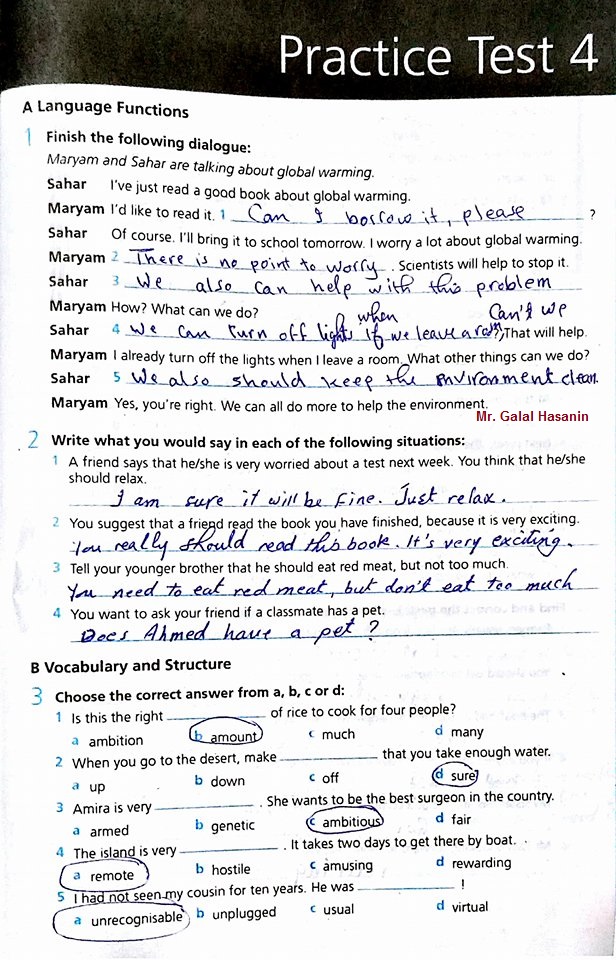 Practice Test 4
A Language Functions
1 Finish the following dialogue:
Maryam and Sahar are talking about global warming.
Sahar I've just read a good book about global warming.
Maryam I'd like to read it. 1 Can I borrow it, please ?
Sahar Of course. I'll bring it to school tomorrow. I worry a lot about global warming.
Maryam 2 There is no point to worry . Scientists will help to stop it.
Sahar 3 We also can help with this problem
Maryam How? What can we do? when Can't we
Sahar 4 We can turn off lights if we leave a room, That will help.
Maryam I already turn off the lights when I leave a room. What other things can we do?
Sahar 5 We also should keep the environment clean.
Maryam Yes, you're right. We can all do more to help the environment.
Mr. Galal Hasanin
2 Write what you would say in each of the following situations:
1 A friend says that he/she is very worried about a test next week. You think that he/she
should relax.
I am sure it will be fine. Just relax.
2 You suggest that a friend read the book you have finished, because it is very exciting.
You really should read this book. It's very exciting.
3 Tell your younger brother that he should eat red meat, but not too much.
You need to eat red meat, but don't eat too much
4 You want to ask your friend if a classmate has a pet.
Does Ahmed have a pet?
B Vocabulary and Structure
3 Choose the correct answer from a, b, c or d:
1 Is this the right ____________ of rice to cook for four people?
a ambition b amount c much d many
2 When you go to the desert, make ____________ that you take enough water.
a up b down c off d sure
3 Amira is very ____________ . She wants to be the best surgeon in the country.
a armed b genetic c ambitious d fair
4 The island is very ____________ . It takes two days to get there by boat.
a remote b hostile c amusing d rewarding
5 I had not seen my cousin for ten years. He was ____________ !
a unrecognisable b unplugged c usual d virtual